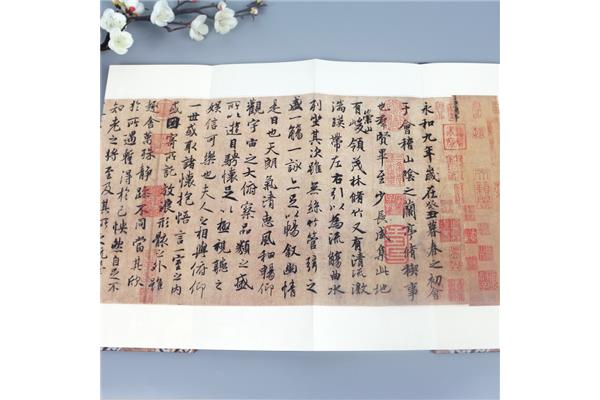 永和九年歲在癸丑暮春之初會
于會稽山陰之蘭亭脩稧事
也羣賢畢至少長咸集此地
有崇山峻領茂林脩竹又有清流激
湍暎帶左右引以為流觴曲水
列坐其次雖無絲竹管弦之
盛一觴一詠亦足以暢敘幽情
是日也天朗氣清惠風和暢仰
觀宇宙之大俯察品類之盛
所以遊目騁懷足以極視聽之
娛信可樂也夫人之相與俯仰
一世或取諸懷抱悟言一室之內
或因寄所託放浪形骸之外雖
趣舍萬殊靜躁不同當其欣
於所遇蹔得於己怏然自足不
知老之將至及其所之